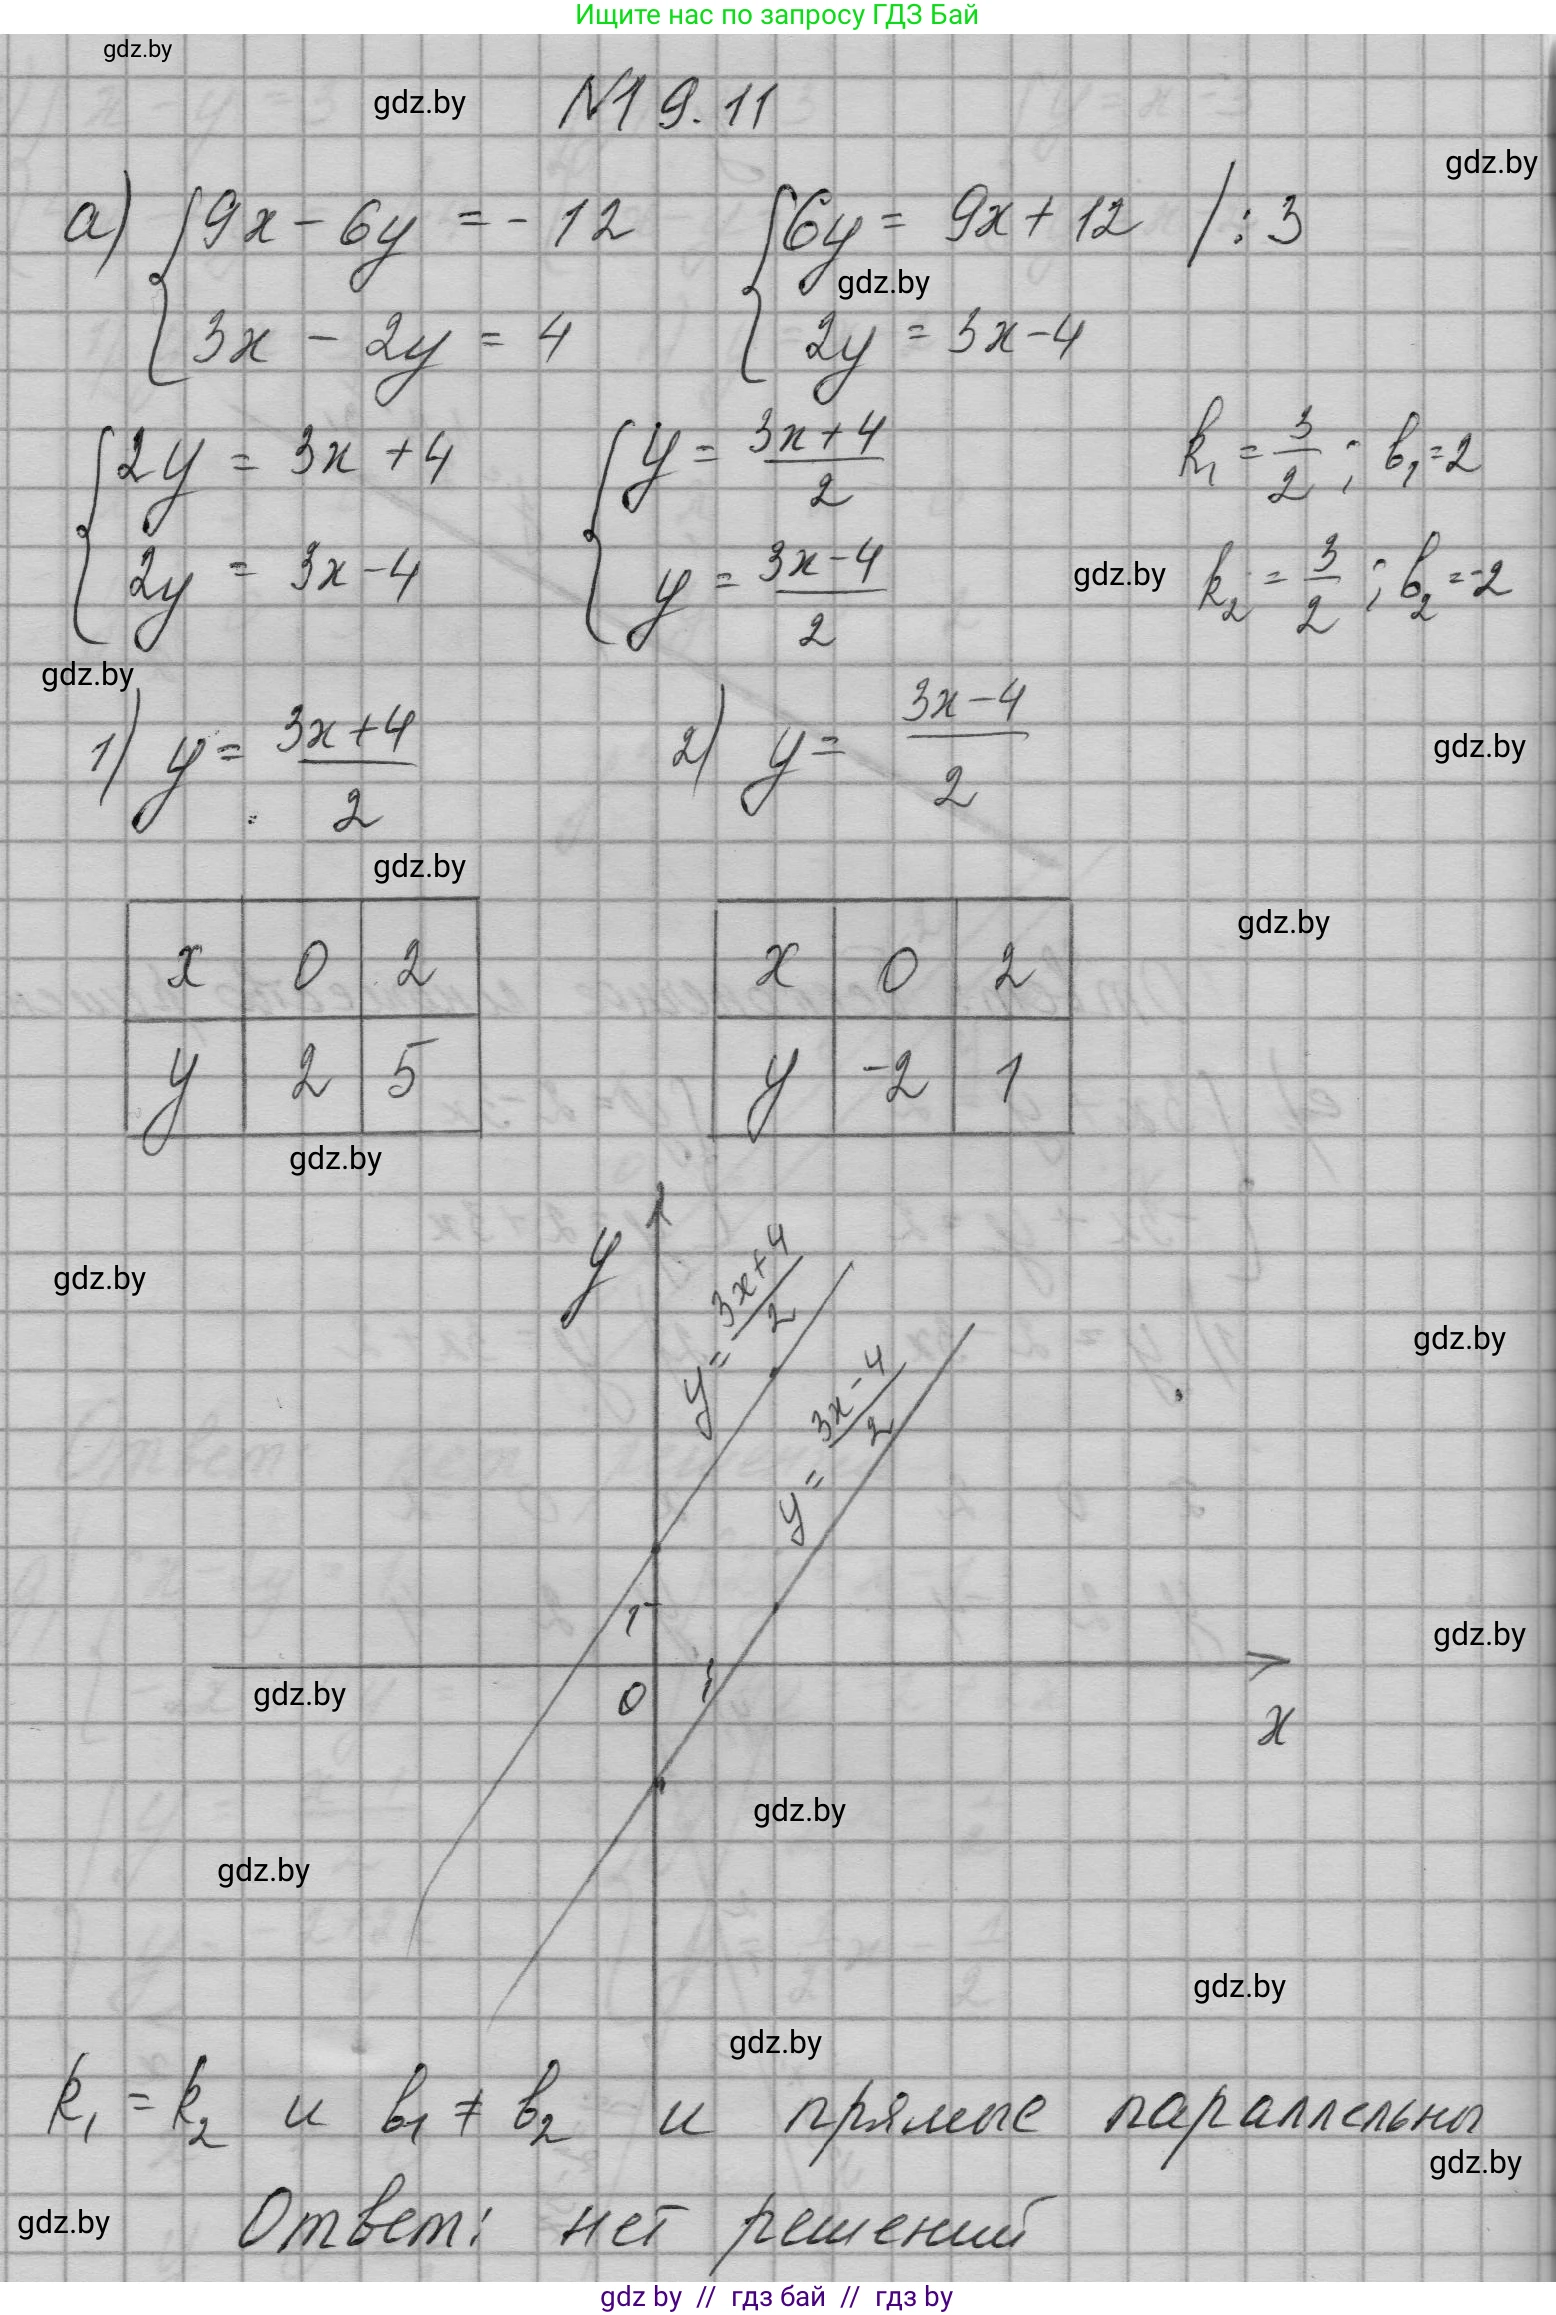 Ищите нас по запросу ГДЗ Бай
gdz.by
gdz.by
№19.11
gdz.by
а) {9x - 6y = - 12 {6y = 9x + 12 /:3
gdz.by
3x - 2y = 4 2y = 3x - 4
{2y = 3x + 4 {y = (3x + 4)/2 k₁ = 3/2 ; b₁ = 2
2y = 3x - 4 y = (3x - 4)/2 gdz.by k₂ = 3/2 ; b₂ = -2
gdz.by
1) y = (3x + 4)/2 2) y = (3x - 4)/2
gdz.by
gdz.by
gdz.by
x 0 2 x 0 2
y 2 5 y -2 1
gdz.by
y
y = (3x + 4)/2
gdz.by
gdz.by
y = (3x - 4)/2
1
gdz.by
gdz.by
0 1
x
gdz.by
gdz.by
gdz.by
gdz.by
k₁ = k₂ и b₁ ≠ b₂ и прямые параллельны
gdz.by
gdz.by
Ответ: нет решений
gdz by // гдз бай // гдз by